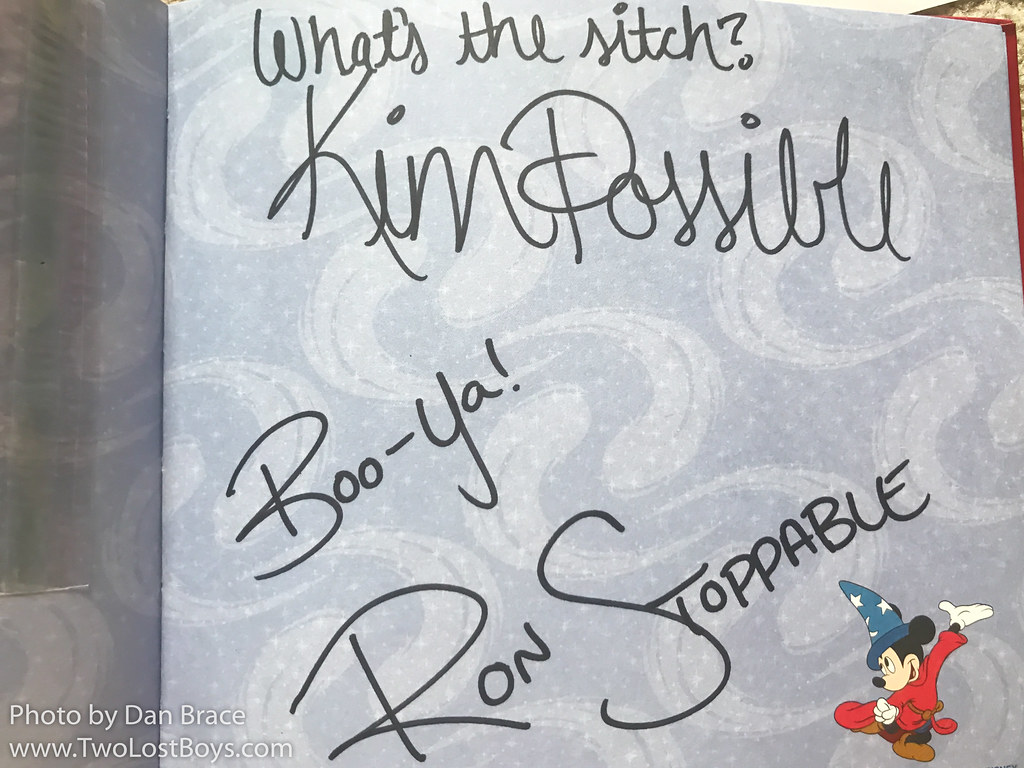 What's the sitch?
Kim Possible
Boo-Ya!
Ron Stoppable
Photo by Dan Brace
www.TwoLostBoys.com